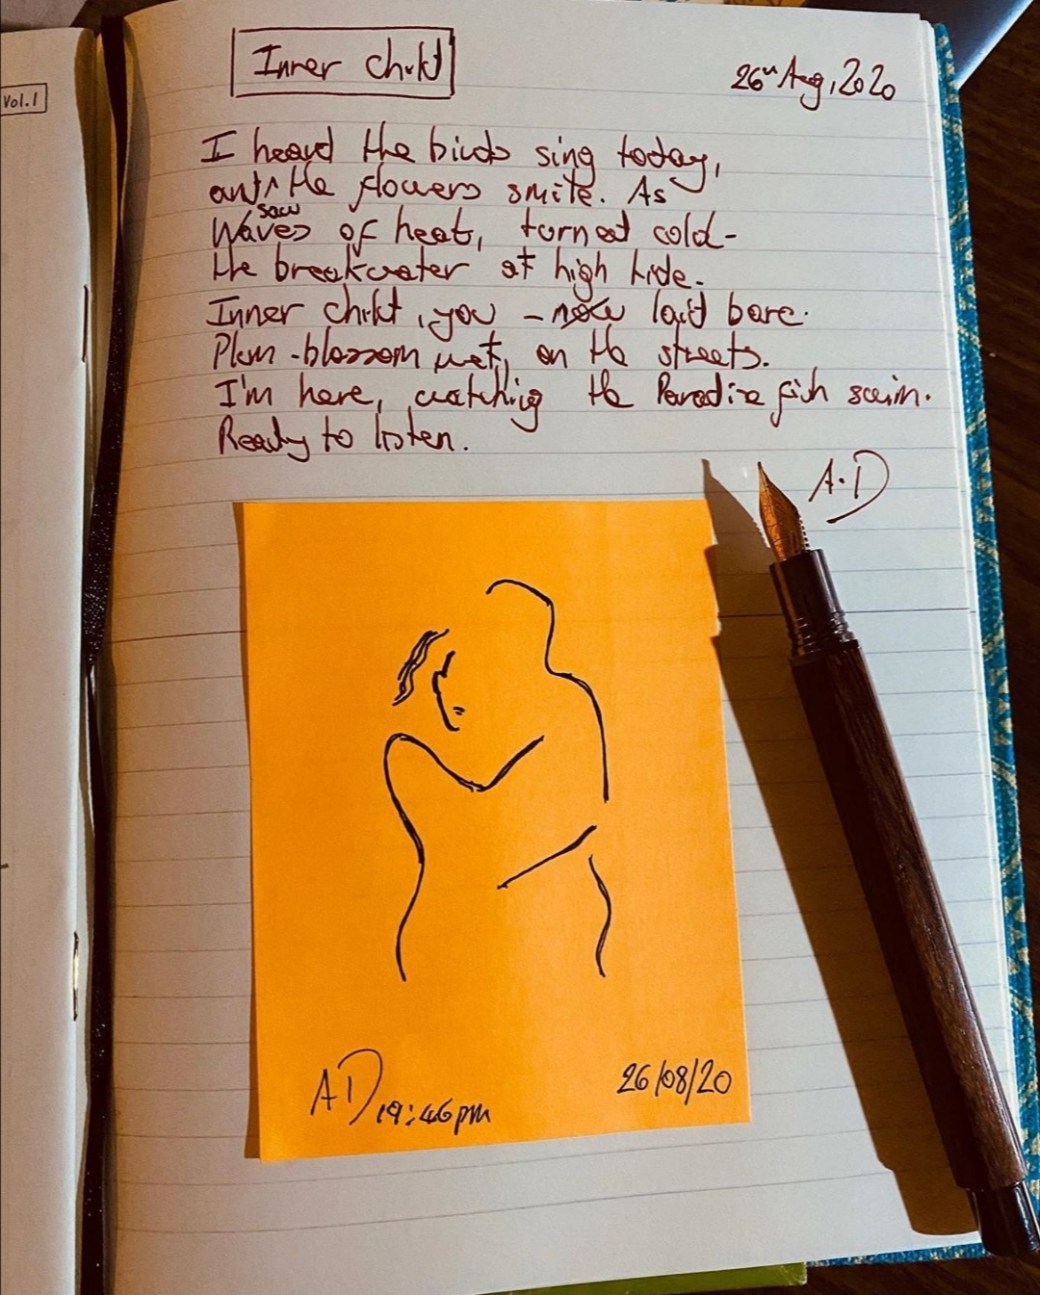 Vol.1
Inner child
26th Aug, 2020
I heard the birds sing today,
and ^ the flowers smile. As
saw
Waves of heat, turned cold-
the breakwater at high tide.
Inner child, you - now laid bare.
Plum-blossom wet, on the streets.
I'm here, watching the Paradise fish swim.
Ready to listen.
A.D
AD 19:46pm
26/08/20